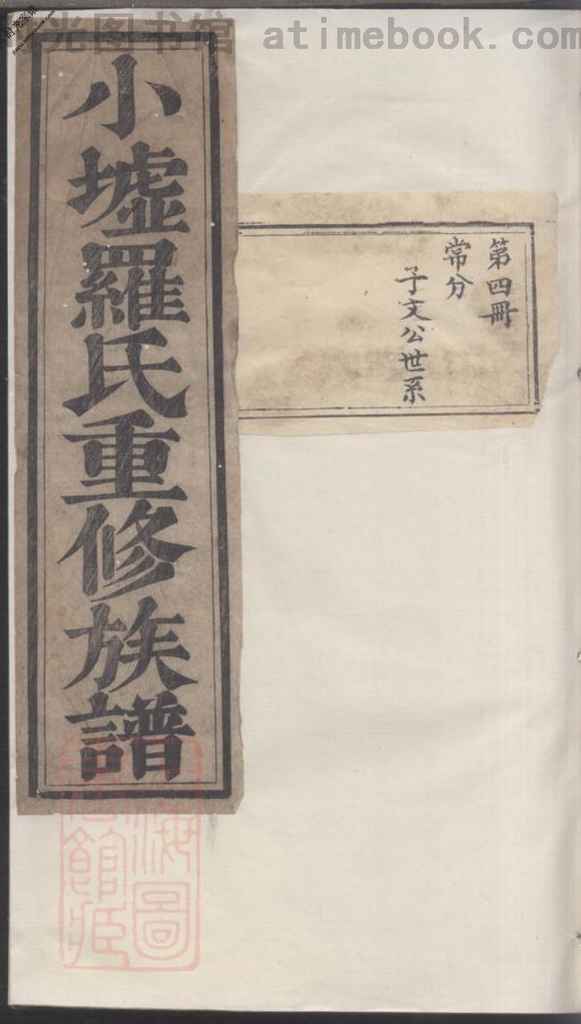 光图书馆 atimebook.com
小墟羅氏重修族譜
第四冊
常分
子文公世系
海圖
館臧